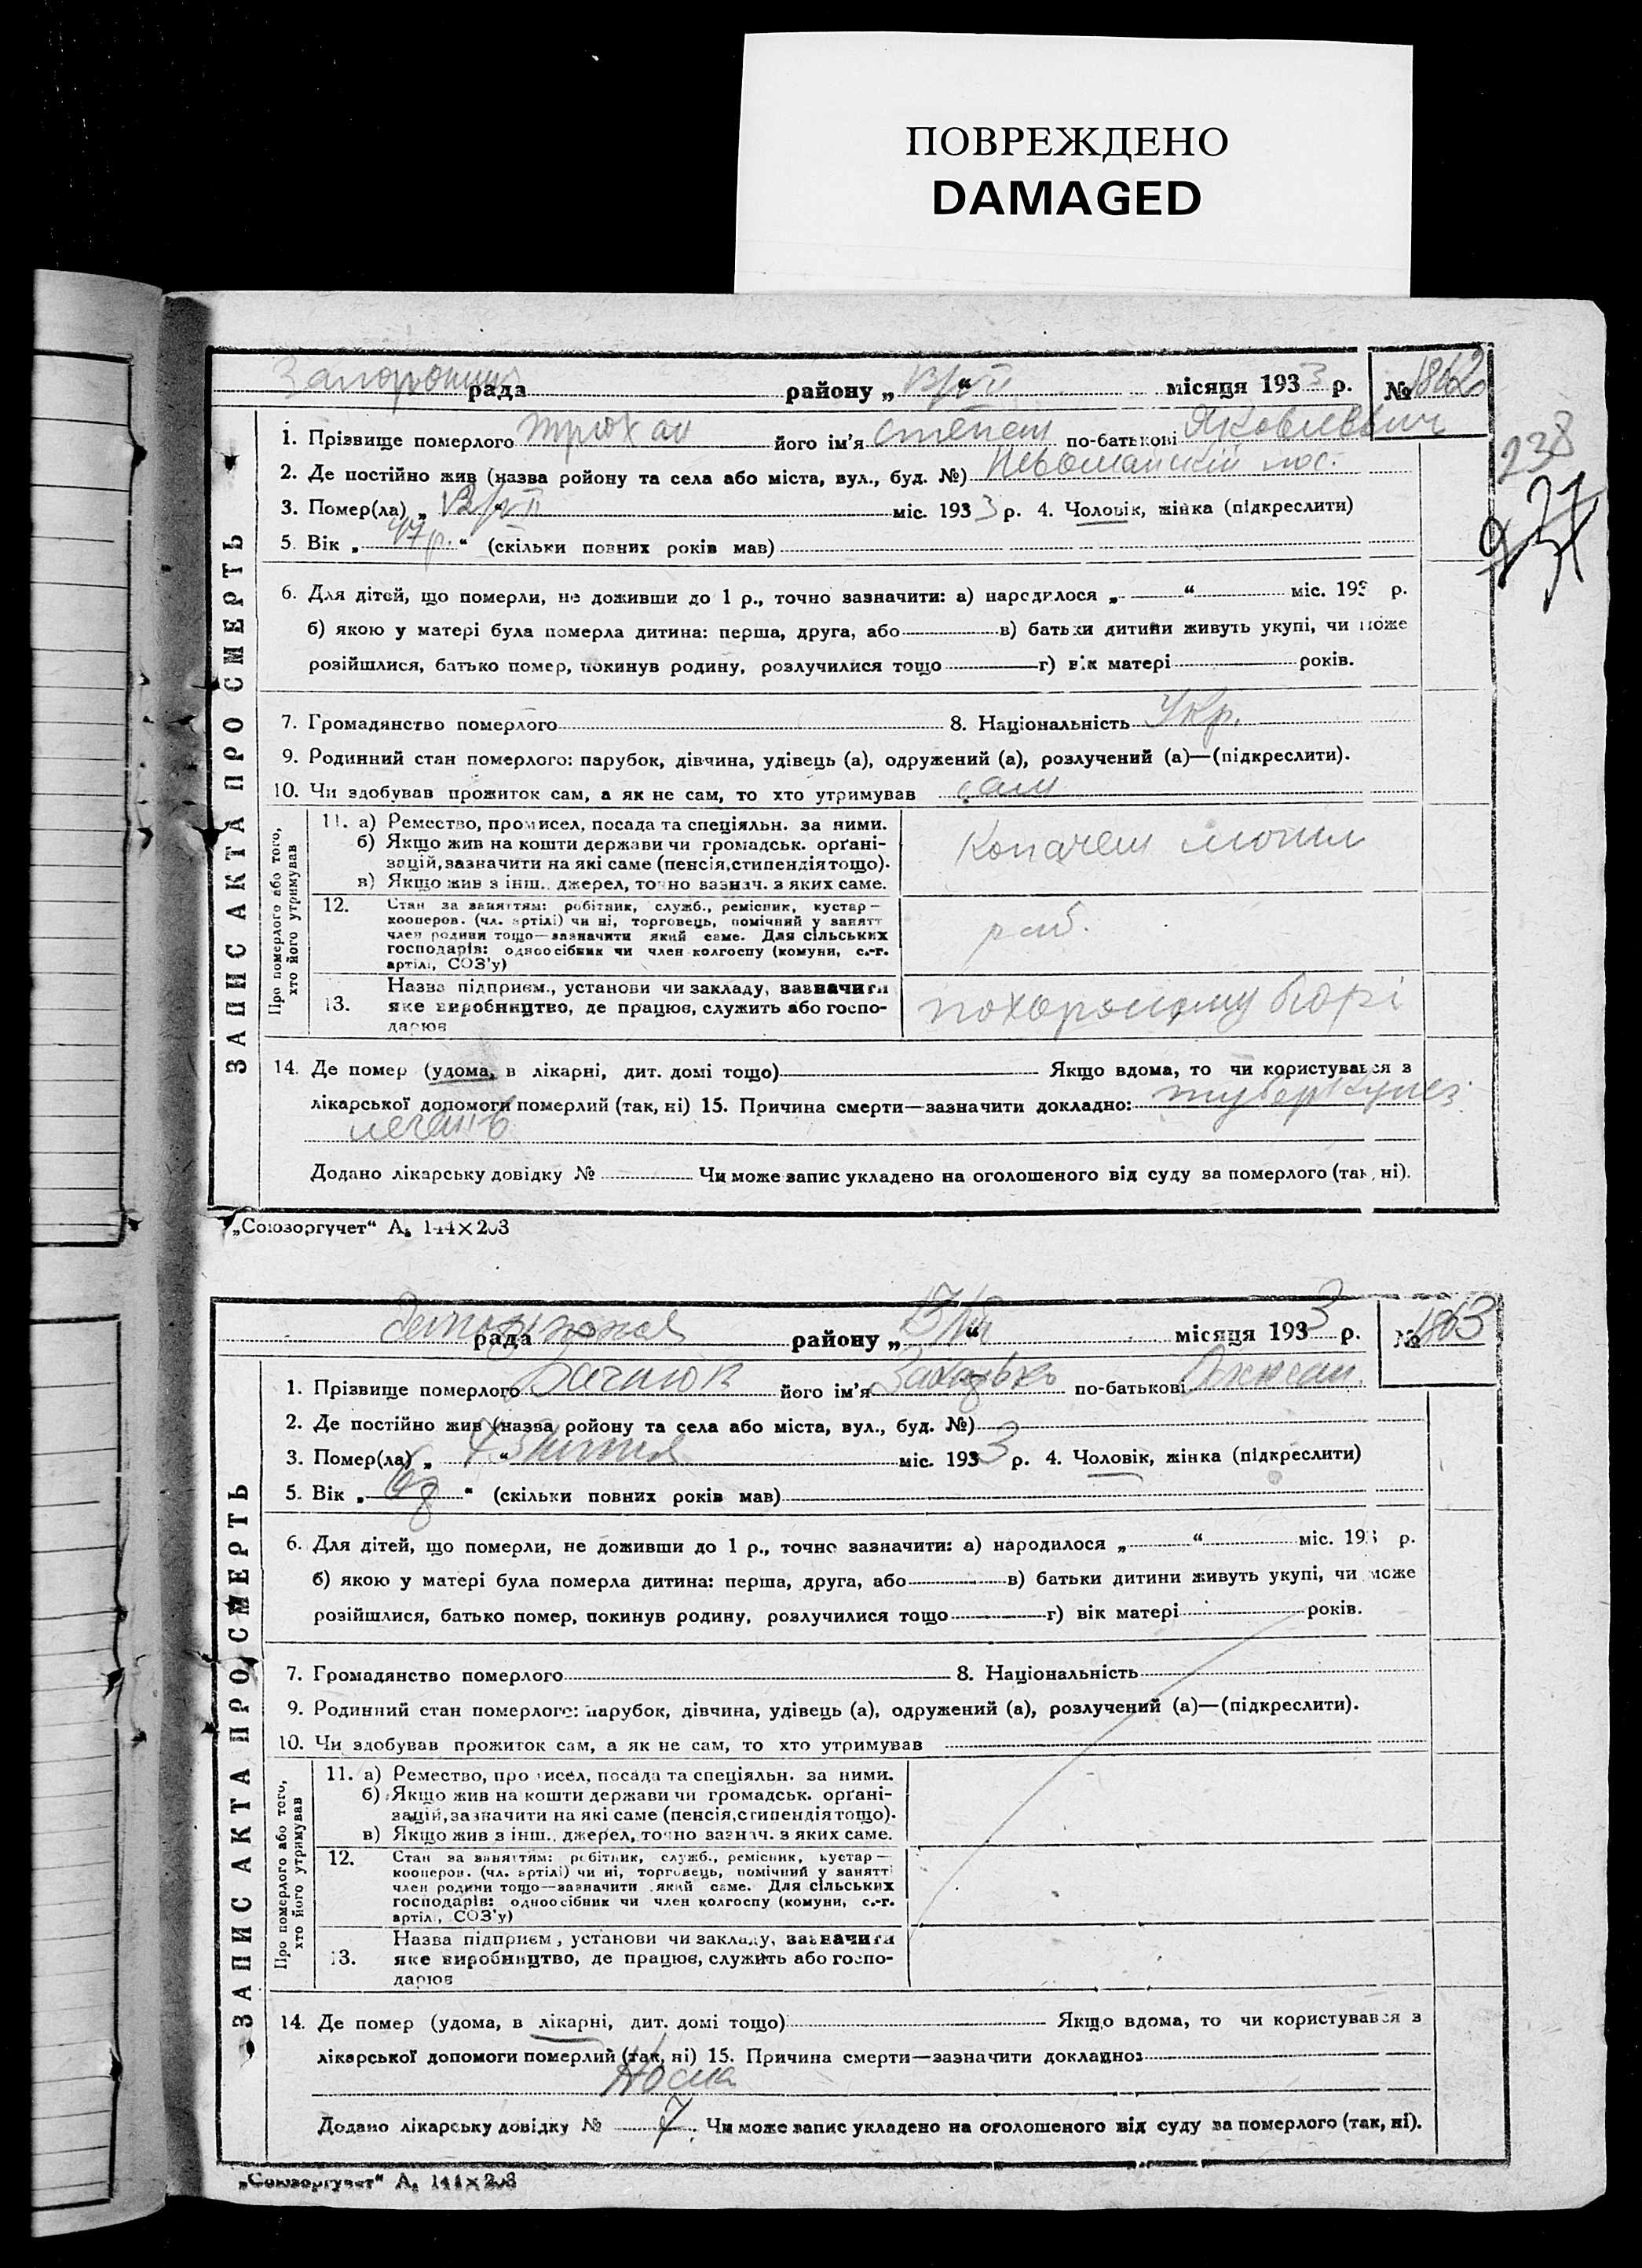 ПОВРЕЖДЕНО
DAMAGED
рада району „ “ місяця 1933 р. № 1862
238
237
ЗАПИС АКТА ПРО СМЕРТЬ
1. Прізвище померлого Трюхан його ім'я Степан по-батькові Яковлевич
2. Де постійно жив (назва ройону та села або міста, вул., буд. №) пос.
3. Помер(ла) „ “ міс. 1933 р. 4. Чоловік, жінка (підкреслити)
5. Вік „ 47 р. “ (скільки повних років мав)
6. Для дітей, що померли, не доживши до 1 р., точно зазначити: а) народилося „ “ міс. 193 р.
б) якою у матері була померла дитина: перша, друга, або в) батьки дитини живуть укупі, чи може
розійшлися, батько помер, покинув родину, розлучилися тощо г) вік матері років.
7. Громадянство померлого 8. Національність Укр.
9. Родинний стан померлого: парубок, дівчина, удівець (а), одружений (а), розлучений (а)—(підкреслити).
10. Чи здобував прожиток сам, а як не сам, то хто утримував сам
Про померлого або того, хто його утримував
11. а) Ремество, промисел, посада та спеціяльн. за ними.
б) Якщо жив на кошти держави чи громадськ. орґані-
зацій, зазначити на які саме (пенсія, стипендія тощо).
в) Якщо жив з інш. джерел, точно зазнач. з яких саме.
Копачем могил
12. Стан за заняттям: робітник, служб., ремісник, кустар—
кооперов. (чл. артілі) чи ні, торговець, помічний у занятт
член родини тощо—зазначити який саме. Для сільських
господарів: одноосібник чи член колгоспу (комуни, с.-г.
артілі, СОЗ'у)
роб.
13. Назва підприєм., установи чи закладу, зазначити
яке виробництво, де працює, служить або госпо-
дарює
бюрі
14. Де помер (удома, в лікарні, дит. домі тощо) Якщо вдома, то чи користувався з
лікарської допомоги померлий (так, ні) 15. Причина смерти—зазначити докладно: туберкульз
легенів
Додано лікарську довідку № Чи може запис укладено на оголошеного від суду за померлого (так, ні).
„Союзоргучет“ А₅ 144×203
рада району „ “ місяця 1933 р. № 1863
ЗАПИС АКТА ПРО СМЕРТЬ
1. Прізвище померлого його ім'я по-батькові
2. Де постійно жив (назва ройону та села або міста, вул., буд. №)
3. Помер(ла) „ “ міс. 1933 р. 4. Чоловік, жінка (підкреслити)
5. Вік „ “ (скільки повних років мав)
6. Для дітей, що померли, не доживши до 1 р., точно зазначити: а) народилося „ “ міс. 193 р.
б) якою у матері була померла дитина: перша, друга, або в) батьки дитини живуть укупі, чи може
розійшлися, батько помер, покинув родину, розлучилися тощо г) вік матері років.
7. Громадянство померлого 8. Національність
9. Родинний стан померлого: парубок, дівчина, удівець (а), одружений (а), розлучений (а)—(підкреслити).
10. Чи здобував прожиток сам, а як не сам, то хто утримував
Про померлого або того, хто його утримував
11. а) Ремество, промисел, посада та спеціяльн. за ними.
б) Якщо жив на кошти держави чи громадськ. орґані-
зацій, зазначити на які саме (пенсія, стипендія тощо).
в) Якщо жив з інш. джерел, точно зазнач. з яких саме.
12. Стан за заняттям: робітник, служб., ремісник, кустар—
кооперов. (чл. артілі) чи ні, торговець, помічний у занятті
член родини тощо—зазначити який саме. Для сільських
господарів: одноосібник чи член колгоспу (комуни, с.-г.
артілі, СОЗ'у)
13. Назва підприєм., установи чи закладу, зазначити
яке виробництво, де працює, служить або госпо-
дарює
14. Де помер (удома, в лікарні, дит. домі тощо) Якщо вдома, то чи користувався з
лікарської допомоги померлий (так, ні) 15. Причина смерти—зазначити докладно:
Додано лікарську довідку № 7 Чи може запис укладено на оголошеного від суду за померлого (так, ні).
„Союзоргучет“ А₅ 144×203